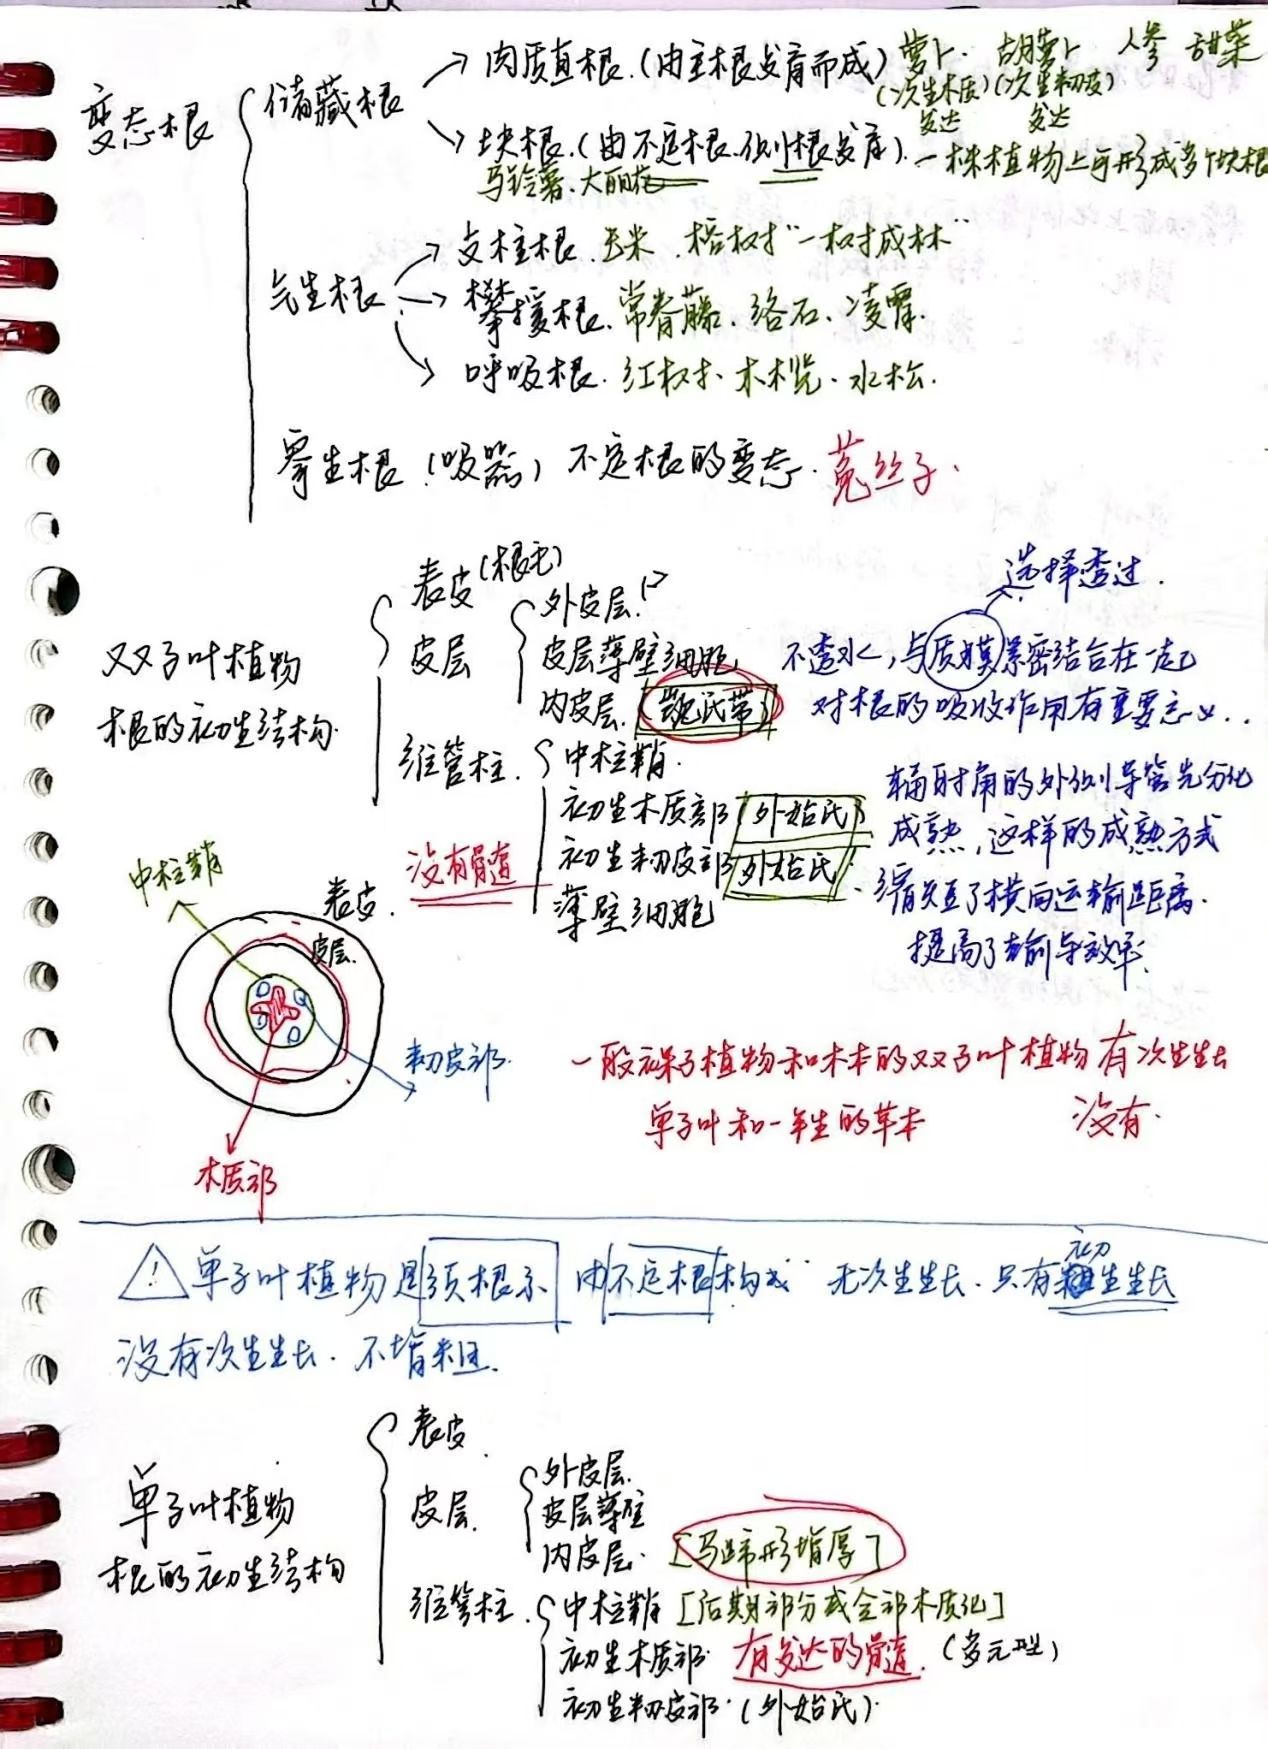 变态根
储藏根
→ 肉质直根.(由主根发育而成) 萝卜. 胡萝卜 人参 甜菜
(次生木质)(次生韧皮)
发达 发达
→ 块根.(由不定根.侧根发育). 一株植物上可形成多个块根
马铃薯.大丽花
气生根
→ 支柱根. 玉米. 榕树 "一树成林"
→ 攀援根. 常春藤. 络石. 凌霄.
→ 呼吸根. 红树木. 木榄. 水松.
寄生根 (吸器) 不定根的变态. 菟丝子.
双子叶植物
根的初生结构.
表皮 (根毛)
皮层
外皮层.
皮层薄壁细胞.
内皮层. (凯氏带)
选择透过.
不透水, 与质膜紧密结合在一起
对根的吸收作用有重要意义..
维管柱.
中柱鞘.
初生木质部 外始式
初生韧皮部 外始式.
薄壁细胞
没有髓
辐射角的外侧导管先分化
成熟, 这样的成熟方式
缩短了横向运输距离.
提高了输导效率.
中柱鞘
表皮.
皮层.
韧皮部.
木质部
一般裸子植物和木本的双子叶植物 有次生生长
单子叶和一年生的草本 没有.
! 单子叶植物是须根系 由不定根构成 无次生生长. 只有初生生长
没有次生生长. 不增粗.
单子叶植物
根的初生结构
表皮.
皮层.
外皮层.
皮层薄壁
内皮层. [马蹄形增厚]
维管柱.
中柱鞘 [后期部分或全部木质化]
初生木质部. 有发达的髓. (多元型)
初生韧皮部. (外始式).